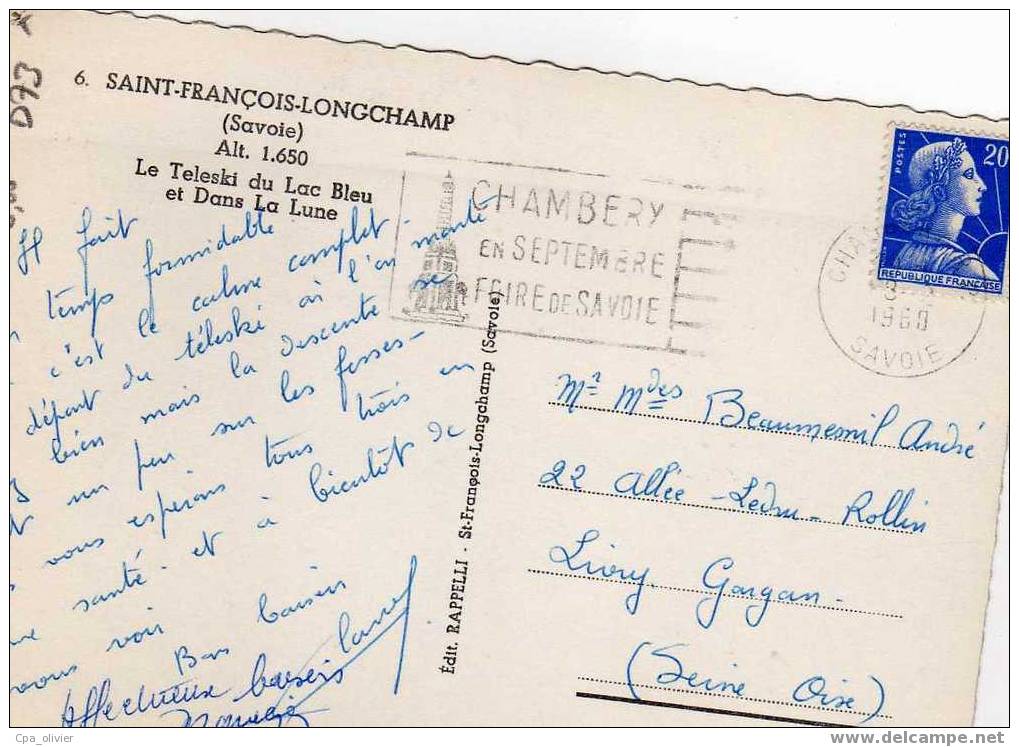 D73
6. SAINT-FRANÇOIS-LONGCHAMP
(Savoie)
Alt. 1.650
Le Teleski du Lac Bleu
et Dans La Lune
CHAMBERY
EN SEPTEMBRE
FOIRE DE SAVOIE
POSTES
20
REPUBLIQUE FRANÇAISE
1960
SAVOIE
Il fait
temps formidable
c'est le calme complet -
départ du téleski où l'on monte
bien mais la descente se
un peu sur les fesses -
vous esperons tous trois en
santé - et à bientôt de
vous voir
Bons baisers
Affectueux baisers
Mr Mdes Beaumesnil André
22 Allée - Ledru - Rollin
Livry Gargan -
(Seine Oise)
Édit. RAPPELLI - St-François-Longchamp (Savoie)
Cpa_olivier
www.delcampe.net